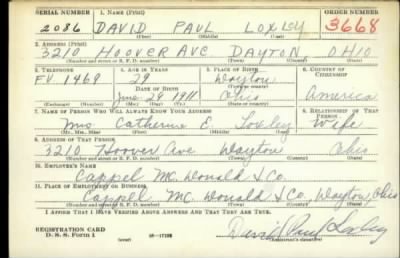 SERIAL NUMBER 1. NAME (Print) ORDER NUMBER
2086 DAVID PAUL LOXLEY 3668
(First) (Middle) (Last)
2. ADDRESS (Print)
3210 HOOVER AVE DAYTON OHIO
(Number and street or R. F. D. number) (Town) (County) (State)
3. TELEPHONE 4. AGE IN YEARS 5. PLACE OF BIRTH 6. COUNTRY OF CITIZENSHIP
FU 1469 29 Dayton
DATE OF BIRTH (Town or county)
June 28 1911 Ohio America
(Exchange) (Number) (Mo.) (Day) (Yr.) (State or country)
7. NAME OF PERSON WHO WILL ALWAYS KNOW YOUR ADDRESS 8. RELATIONSHIP OF THAT PERSON
Mrs Catherine E. Loxley Wife
(Mr., Mrs., Miss) (First) (Middle) (Last)
9. ADDRESS OF THAT PERSON
3210 Hoover Ave Dayton Ohio
(Number and street or R. F. D. number) (Town) (County) (State)
10. EMPLOYER'S NAME
Cappel Mc. Donald & Co.
11. PLACE OF EMPLOYMENT OR BUSINESS
Cappel Mc. Donald & Co, Dayton, Ohio
(Number and street or R. F. D. number) (Town) (County) (State)
I AFFIRM THAT I HAVE VERIFIED ABOVE ANSWERS AND THAT THEY ARE TRUE.
REGISTRATION CARD
D. S. S. Form 1 (over) David Paul Loxley
(Registrant's signature)